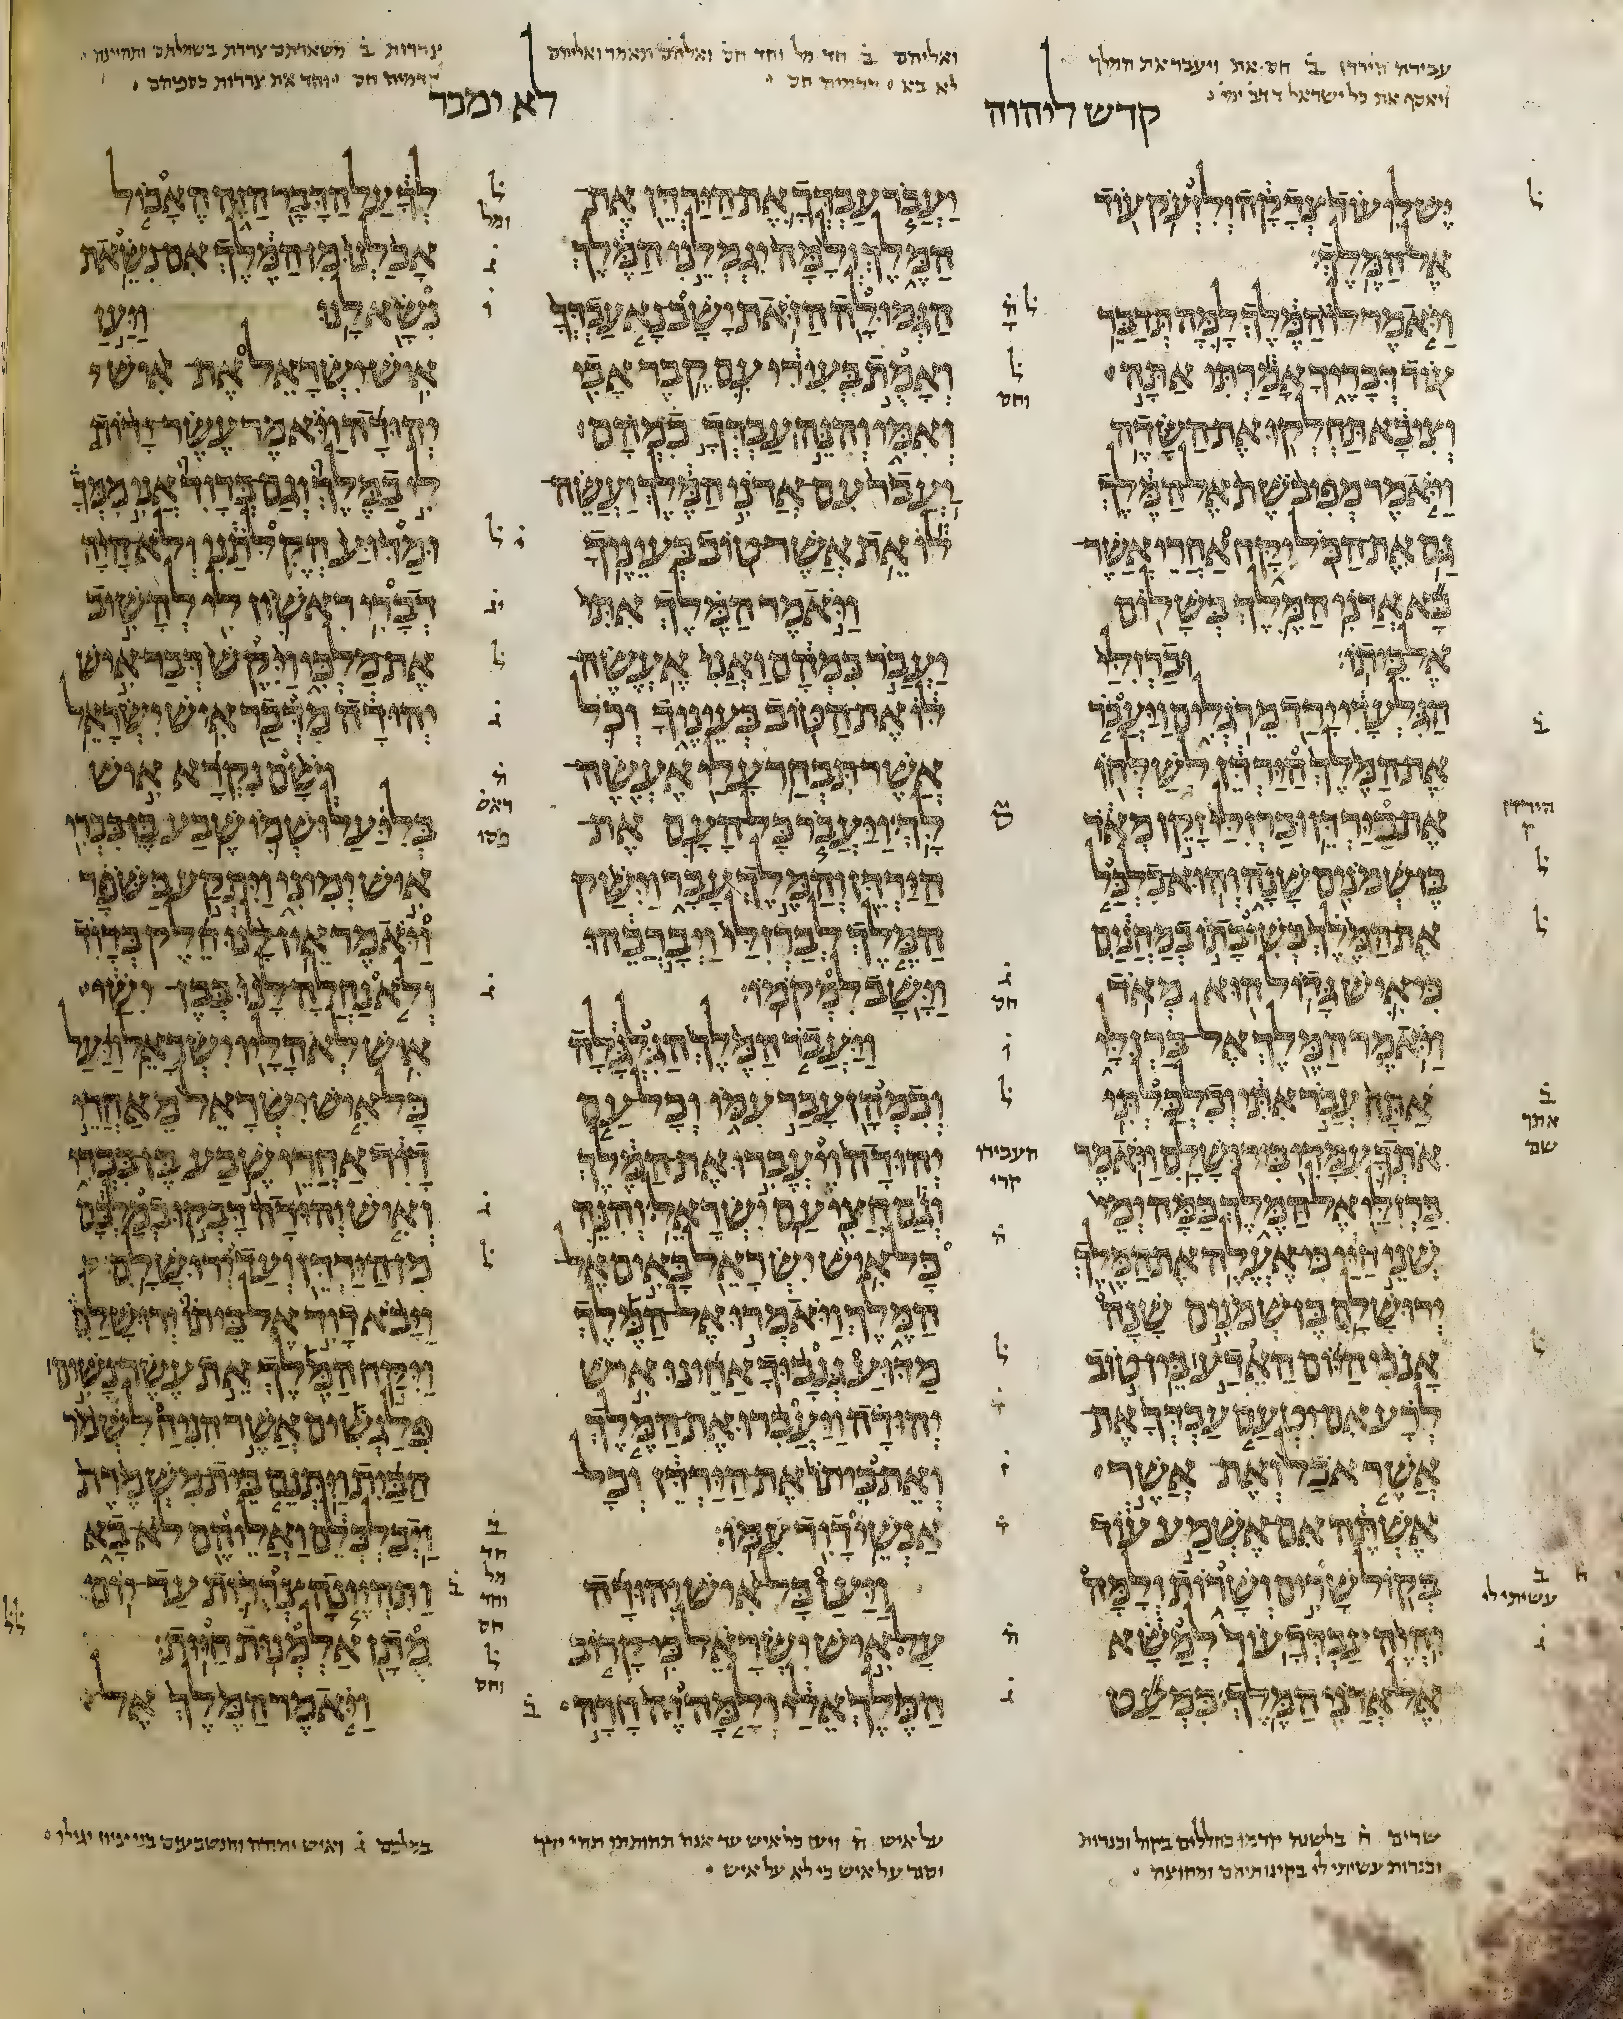 עבירת הירדן ב חס את ויעבר את המלך
ויאסף את כל ישראל דדב ימי
ואליהם ב חד מל וחד חס ואלהם תאמר ואליהם
לא בא
צררות ב משארתם צררת בשמלתם ותהיינה
קדש ליהוה
לא ימכר
יש לי עוד צדקה ולזעק עוד
אל המלך
ויאמר לו המלך למה תדבר
עוד דבריך אמרתי אתה
וציבא תחלקו את השדה
ויאמר מפיבשת אל המלך
גם את הכל יקח אחרי אשר
בא אדני המלך בשלום
אל ביתו וברזלי
הגלעדי ירד מרגלים ויעבר
את המלך הירדן לשלחו
את בירדן וברזלי זקן מאד
בן שמנים שנה והוא כלכל
את המלך בשיבתו במחנים
כי איש גדול הוא מאד
ויאמר המלך אל ברזלי
אתה עבר אתי וכלכלתי
אתך עמדי בירושלם ויאמר
ברזלי אל המלך כמה ימי
שני חיי כי אעלה את המלך
ירושלם בן שמנים שנה
אנכי היום האדע בין טוב
לרע אם יטעם עבדך את
אשר אכל ואת אשר
אשתה אם אשמע עוד
בקול שרים ושרות ולמה
יהיה עבדך עוד למשא
אל אדני המלך כמעט
יעבר עבדך את הירדן את
המלך ולמה יגמלני המלך
הגמולה הזאת ישב נא עבדך
ואמת בעירי עם קבר אבי
ואמי והנה עבדך כמהם
יעבר עם אדני המלך ועשה
לו את אשר טוב בעיניך
ויאמר המלך אתי
יעבר כמהם ואני אעשה
לו את הטוב בעיניך וכל
אשר תבחר עלי אעשה
לך ויעבר כל העם את
הירדן והמלך עבר וישק
המלך לברזלי ויברכהו
וישב למקמו
ויעבר המלך הגלגלה
וכמהן עבר עמו וכל עם
יהודה ויעברו את המלך
וגם חצי עם ישראל והנה
כל איש ישראל באים אל
המלך ויאמרו אל המלך
מדוע גנבוך אחינו איש
יהודה ויעברו את המלך
ואת ביתו את הירדן וכל
אנשי דוד עמו
ויען כל איש יהודה
על איש ישראל כי קרוב
המלך אלי ולמה זה חרה
לך על הדבר הזה האכול
אכלנו מן המלך אם נשאת
נשא לנו ויען
איש ישראל את איש
יהודה ויאמר עשר ידות
לי במלך וגם בדוד אני ממך
ומדוע הקלתני ולא היה
דברי ראשון לי להשיב
את מלכי ויקש דבר איש
יהודה מדבר איש ישראל
ושם נקרא איש
בליעל ושמו שבע בן בכרי
איש ימיני ויתקע בשפר
ויאמר אין לנו חלק בדוד
ולא נחלה לנו בבן ישי
איש לאהליו ישראל ויעל
כל איש ישראל מאחרי
דוד אחרי שבע בן בכרי
ואיש יהודה דבקו במלכם
מן הירדן ועד ירושלם
ויבא דוד אל ביתו ירושלם
ויקח המלך את עשר נשים
פלגשים אשר הניח לשמר
הבית ויתנם בית משמרת
ויכלכלם ואליהם לא בא
ותהיינה צררות עד יום
מתן אלמנות חיות
ויאמר המלך אל
שרים ח בלשנה קדמו
וכנרות עשיתי לי
על איש ח ויען כל איש
וסגר על איש כי לא על איש
במלכם ג ואיש יהודה